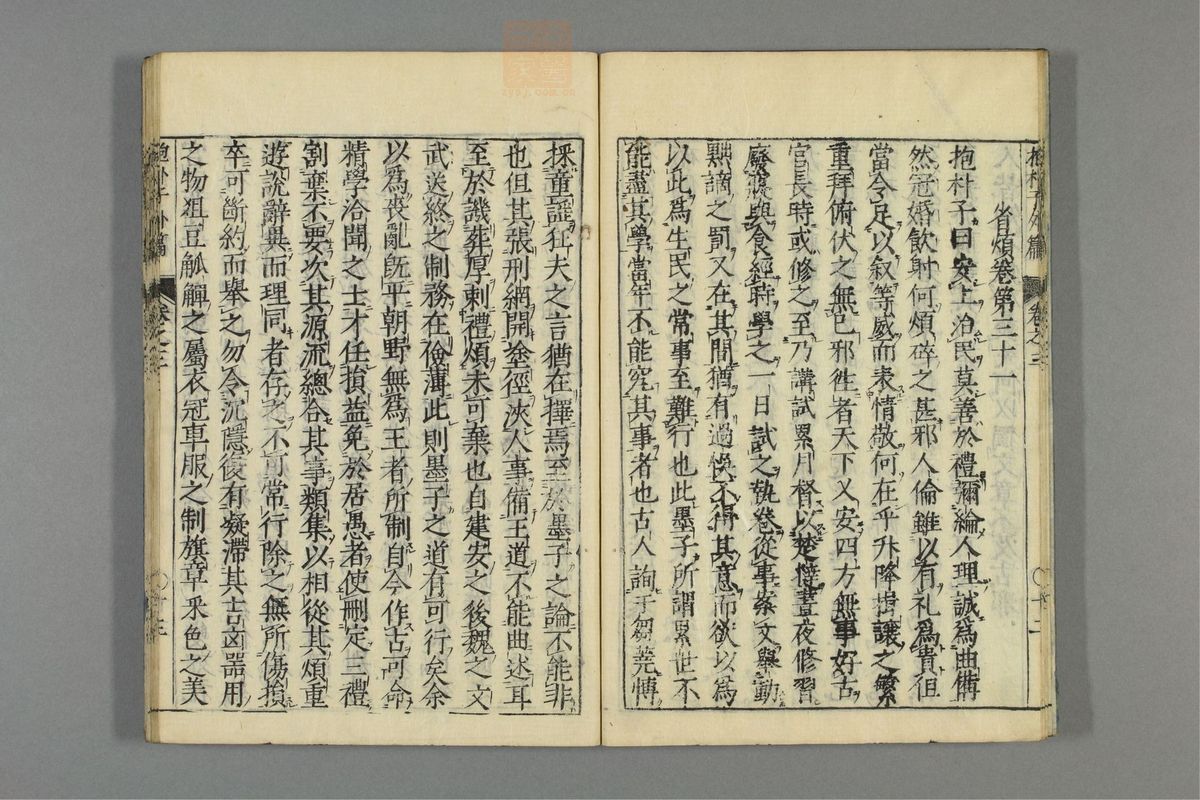 省煩卷第三十一
抱朴子曰安上治民莫善於禮彌綸人理誠爲曲備
然冠婚飲射何煩碎之甚邪人倫雖以有礼爲貴但
當令足以叙等威而表情敬何在乎升降揖讓之繁
重拜俯伏之無已邪徃者天下乂安四方無事好古
官長時或修之至乃講試累月督以楚撻晝夜修習
廢寢與食經時學之一日試之執卷從事案文舉動
黜謫之罰又在其間猶有過悞不得其意而欲以爲
以此爲生民之常事至難行也此墨子所謂累世不
能盡其學當年不能究其事者也古人詢于芻蕘愽
採童謡狂夫之言猶在擇焉至於墨子之論不能非
也但其張刑網開塗徑浹人事備王道不能曲述耳
至於譏葬厚刺禮煩未可棄也自建安之後魏之文
武送終之制務在儉薄此則墨子之道有可行矣余
以爲喪亂旣平朝野無爲王者所制自今作古可命
精學洽聞之士才任損益免於居愚者使刪定三禮
割棄不要次其源流總合其事類集以相從其煩重
遊說辭異而理同者存之不可常行除之無所傷損
卒可斷約而舉之勿令沉隱復有凝滯其吉凶器用
之物狙豆觚觶之屬衣冠車服之制旗章采色之美
抱朴子外篇
卷之三
十二
抱朴子外篇
卷之三
十三
zysj.com.cn